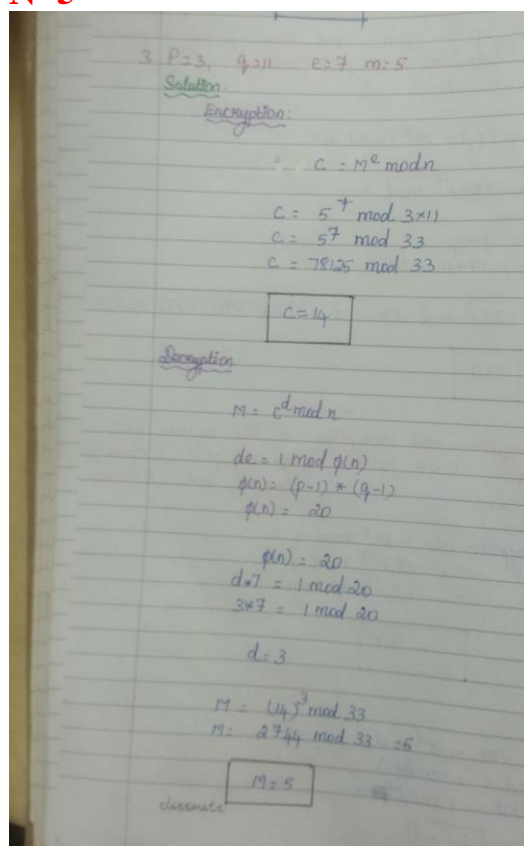 3 P=3, q=11 e=7 m=5
Solution.
Encryption:
C = M^e mod n
C = 5^7 mod 3×11
C = 5^7 mod 33
C = 78125 mod 33
C=14
Decryption
M = C^d mod n
de = 1 mod φ(n)
φ(n) = (p-1) * (q-1)
φ(n) = 20
φ(n) = 20
d*7 = 1 mod 20
3*7 = 1 mod 20
d=3
M = (14)^3 mod 33
M = 2744 mod 33 =5
M=5
classmate